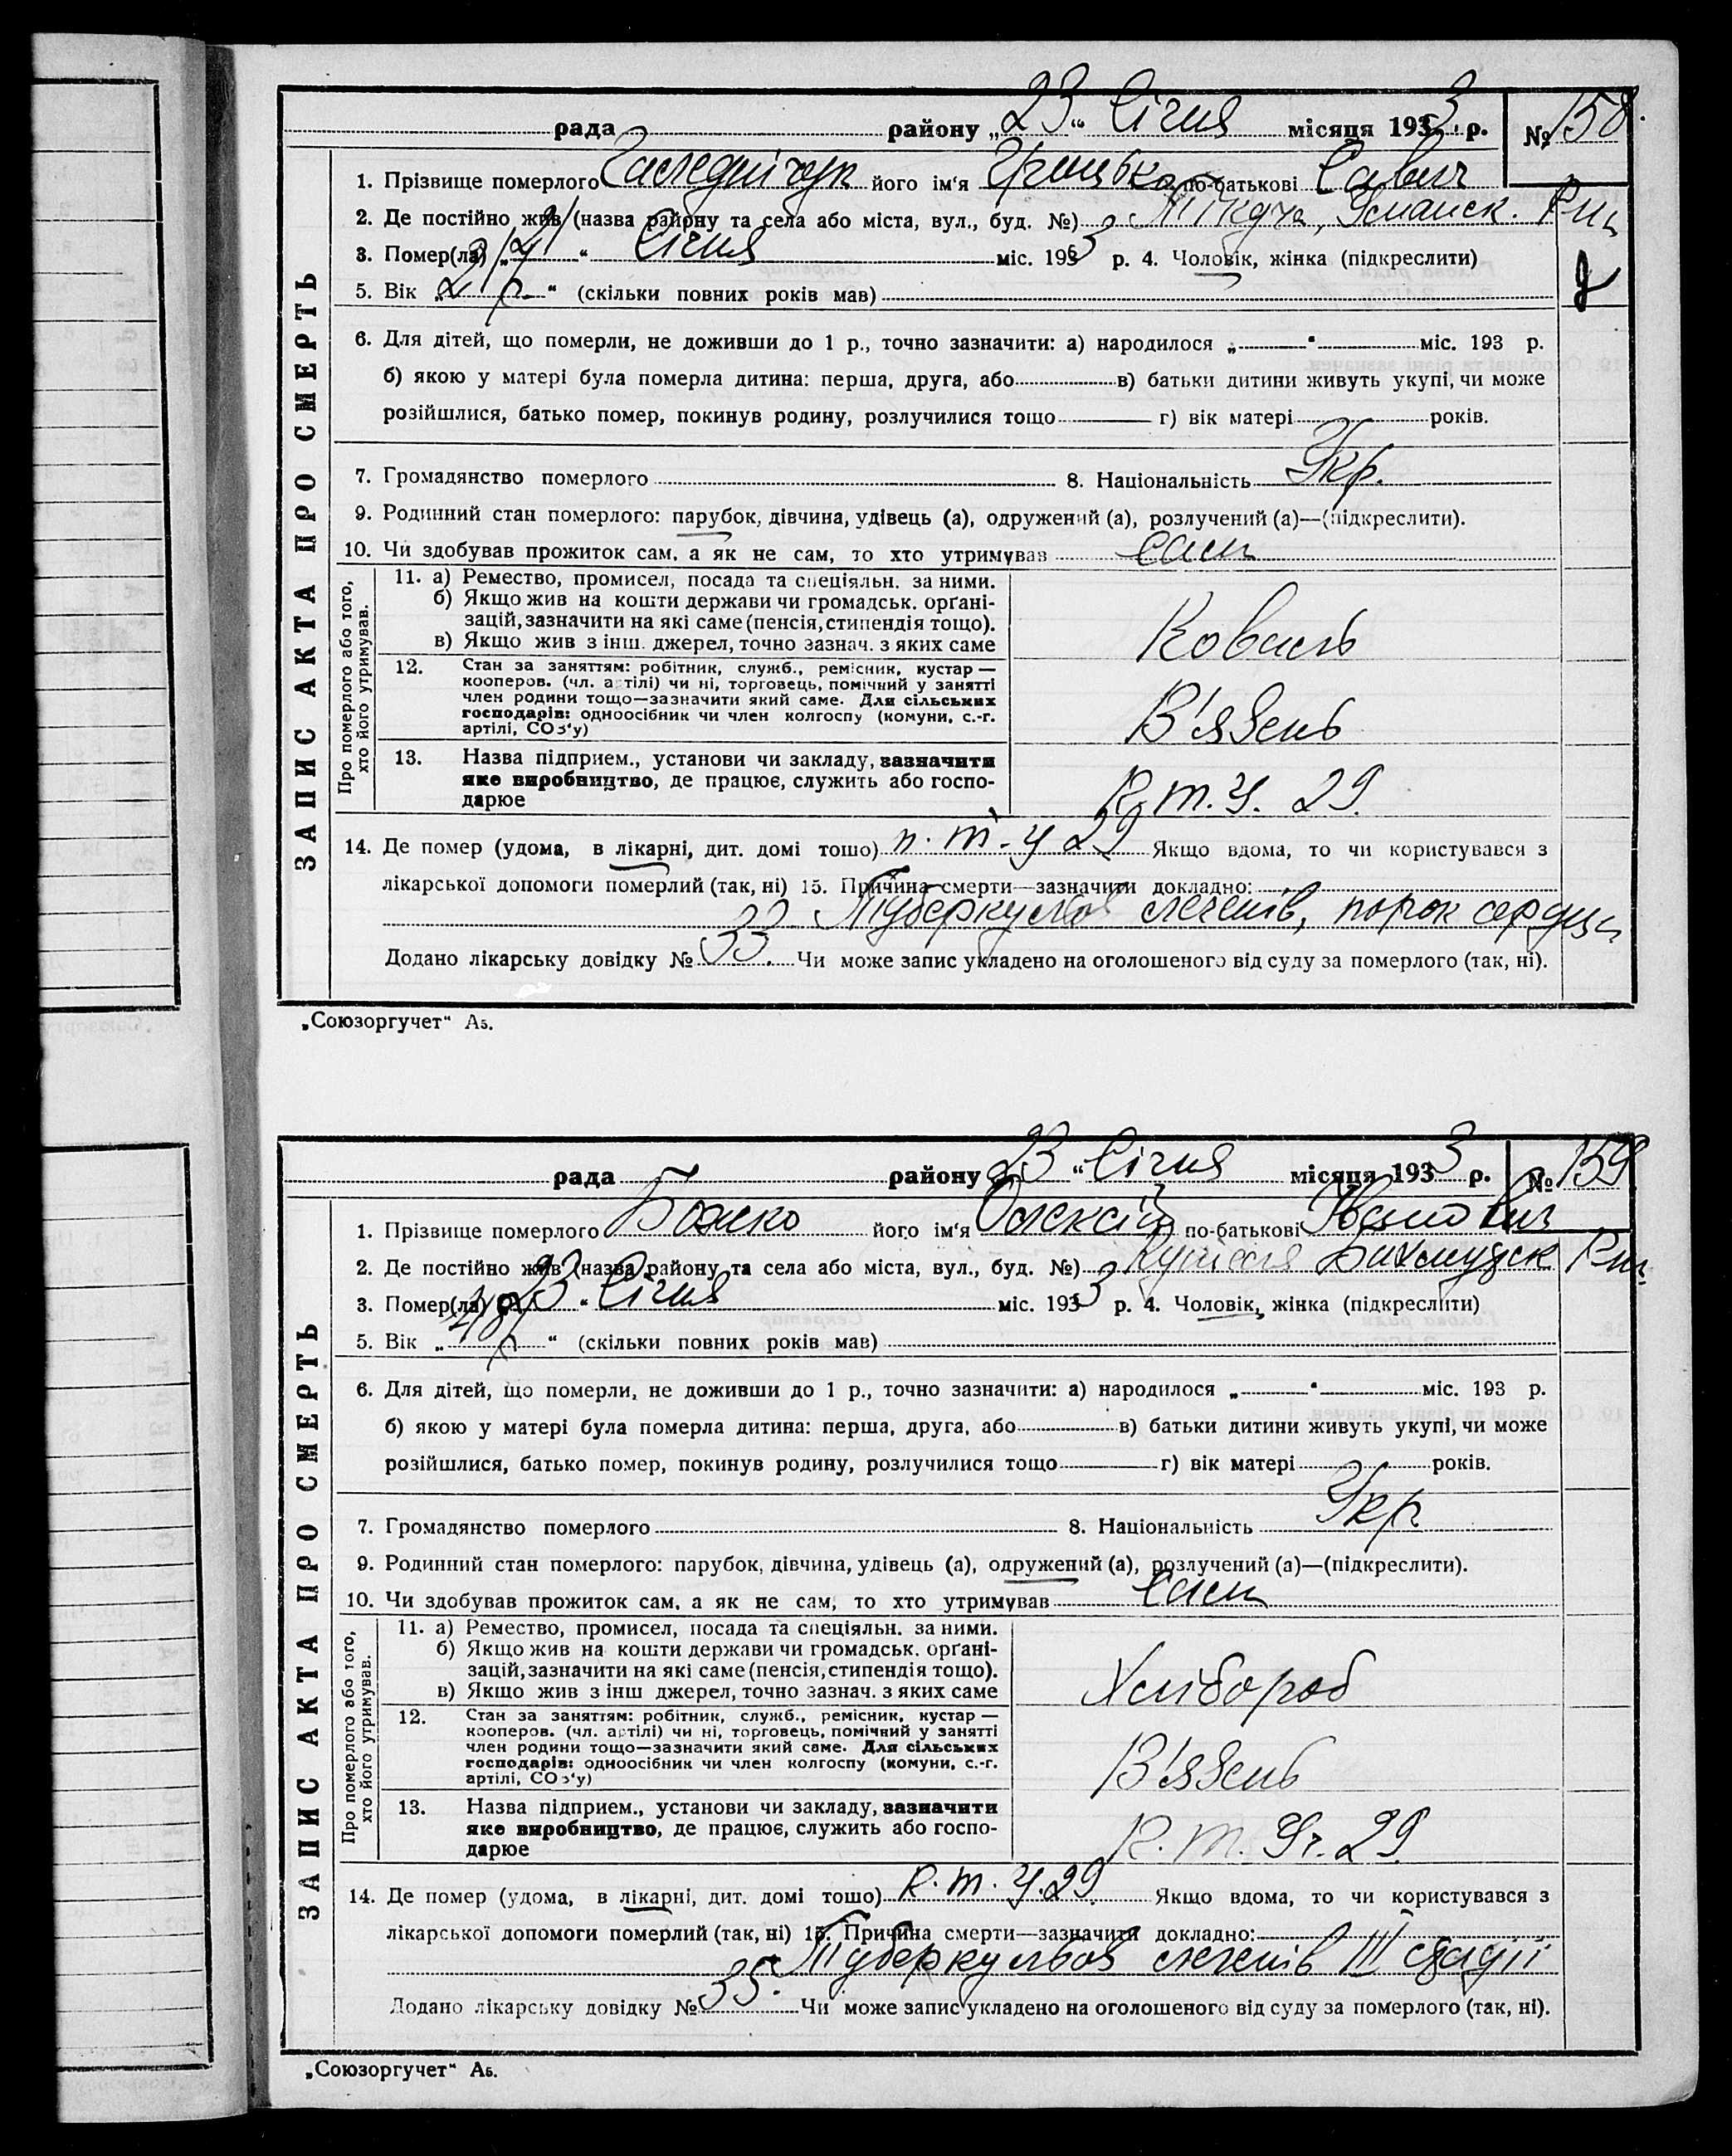 рада району „23“ Січня місяця 1933 р. № 158.
1. Прізвище померлого його ім‘я Грицько по-батькові Савич
2. Де постійно жив (назва району та села або міста, вул., буд. №) Уманск. Р-ну
3. Помер(ла) „ “ Січня міс. 1933 р. 4. Чоловік, жінка (підкреслити)
5. Вік „21 р.“ (скільки повних років мав)
6. Для дітей, що померли, не доживши до 1 р., точно зазначити: а) народилося „ “ міс. 193 р.
б) якою у матері була померла дитина: перша, друга, або в) батьки дитини живуть укупі, чи може
розійшлися, батько помер, покинув родину, розлучилися тощо г) вік матері років.
7. Громадянство померлого 8. Національність Укр.
9. Родинний стан померлого: парубок, дівчина, удівець (а), одружений (а), розлучений (а)—(підкреслити).
10. Чи здобував прожиток сам, а як не сам, то хто утримував сам
ЗАПИС АКТА ПРО СМЕРТЬ
Про померлого або того, хто його утримував.
11. а) Ремество, промисел, посада та спеціяльн. за ними.
б) Якщо жив на кошти держави чи громадськ. орґані-
зацій, зазначити на які саме (пенсія, стипендія тощо).
в) Якщо жив з інш. джерел, точно зазнач. з яких саме
Коваль
12. Стан за заняттям: робітник, служб., ремісник, кустар —
кооперов. (чл. артілі) чи ні, торговець, помічний у занятті
член родини тощо—зазначити який саме. Для сільських
господарів: одноосібник чи член колгоспу (комуни, с.-г.
артілі, СОЗ‘у)
В'язень
13. Назва підприєм., установи чи закладу, зазначити
яке виробництво, де працює, служить або госпо-
дарює
П. т. У. 29.
14. Де помер (удома, в лікарні, дит. домі тошо) п. т. у 29 Якщо вдома, то чи користувався з
лікарської допомоги померлий (так, ні) 15. Причина смерти—зазначити докладно:
Туберкульоз легенів, порок сердця
Додано лікарську довідку № 33. Чи може запис укладено на оголошеного від суду за померлого (так, ні).
„Союзоргучет“ А5.
рада району „23“ Січня місяця 1933 р. № 159
1. Прізвище померлого Божко його ім‘я Олексій по-батькові
2. Де постійно жив (назва району та села або міста, вул., буд. №) Бахмудск Р-ну
3. Помер(ла) „23“ Січня міс. 1933 р. 4. Чоловік, жінка (підкреслити)
5. Вік „48 р“ (скільки повних років мав)
6. Для дітей, що померли, не доживши до 1 р., точно зазначити: а) народилося „ “ міс. 193 р.
б) якою у матері була померла дитина: перша, друга, або в) батьки дитини живуть укупі, чи може
розійшлися, батько помер, покинув родину, розлучилися тощо г) вік матері років.
7. Громадянство померлого 8. Національність Укр
9. Родинний стан померлого: парубок, дівчина, удівець (а), одружений (а), розлучений (а)—(підкреслити).
10. Чи здобував прожиток сам, а як не сам, то хто утримував сам
ЗАПИС АКТА ПРО СМЕРТЬ
Про померлого або того, хто його утримував.
11. а) Ремество, промисел, посада та спеціяльн. за ними.
б) Якщо жив на кошти держави чи громадськ. орґані-
зацій, зазначити на які саме (пенсія, стипендія тощо).
в) Якщо жив з інш джерел, точно зазнач. з яких саме
Хлібороб
12. Стан за заняттям: робітник, служб., ремісник, кустар —
кооперов. (чл. артілі) чи ні, торговець, помічний у занятті
член родини тощо—зазначити який саме. Для сільських
господарів: одноосібник чи член колгоспу (комуни, с.-г.
артілі, СОЗ‘у)
В'язень
13. Назва підприєм., установи чи закладу, зазначити
яке виробництво, де працює, служить або госпо-
дарює
П. т. У. 29.
14. Де помер (удома, в лікарні, дит. домі тошо) П. т. у. 29 Якщо вдома, то чи користувався з
лікарської допомоги померлий (так, ні) 15. Причина смерти—зазначити докладно:
Туберкульоз легенів III стадії
Додано лікарську довідку № 35. Чи може запис укладено на оголошеного від суду за померлого (так, ні).
„Союзоргучет“ А5.